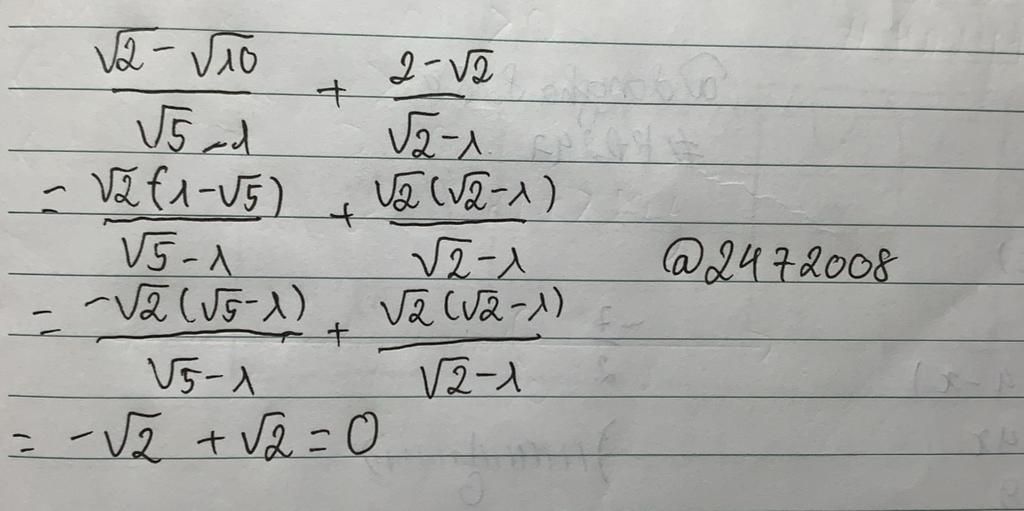 (√2 - √10)/(√5 - 1) + (2 - √2)/(√2 - 1)
= √2(1 - √5)/(√5 - 1) + √2(√2 - 1)/(√2 - 1)
@2472008
= -√2(√5 - 1)/(√5 - 1) + √2(√2 - 1)/(√2 - 1)
= -√2 + √2 = 0